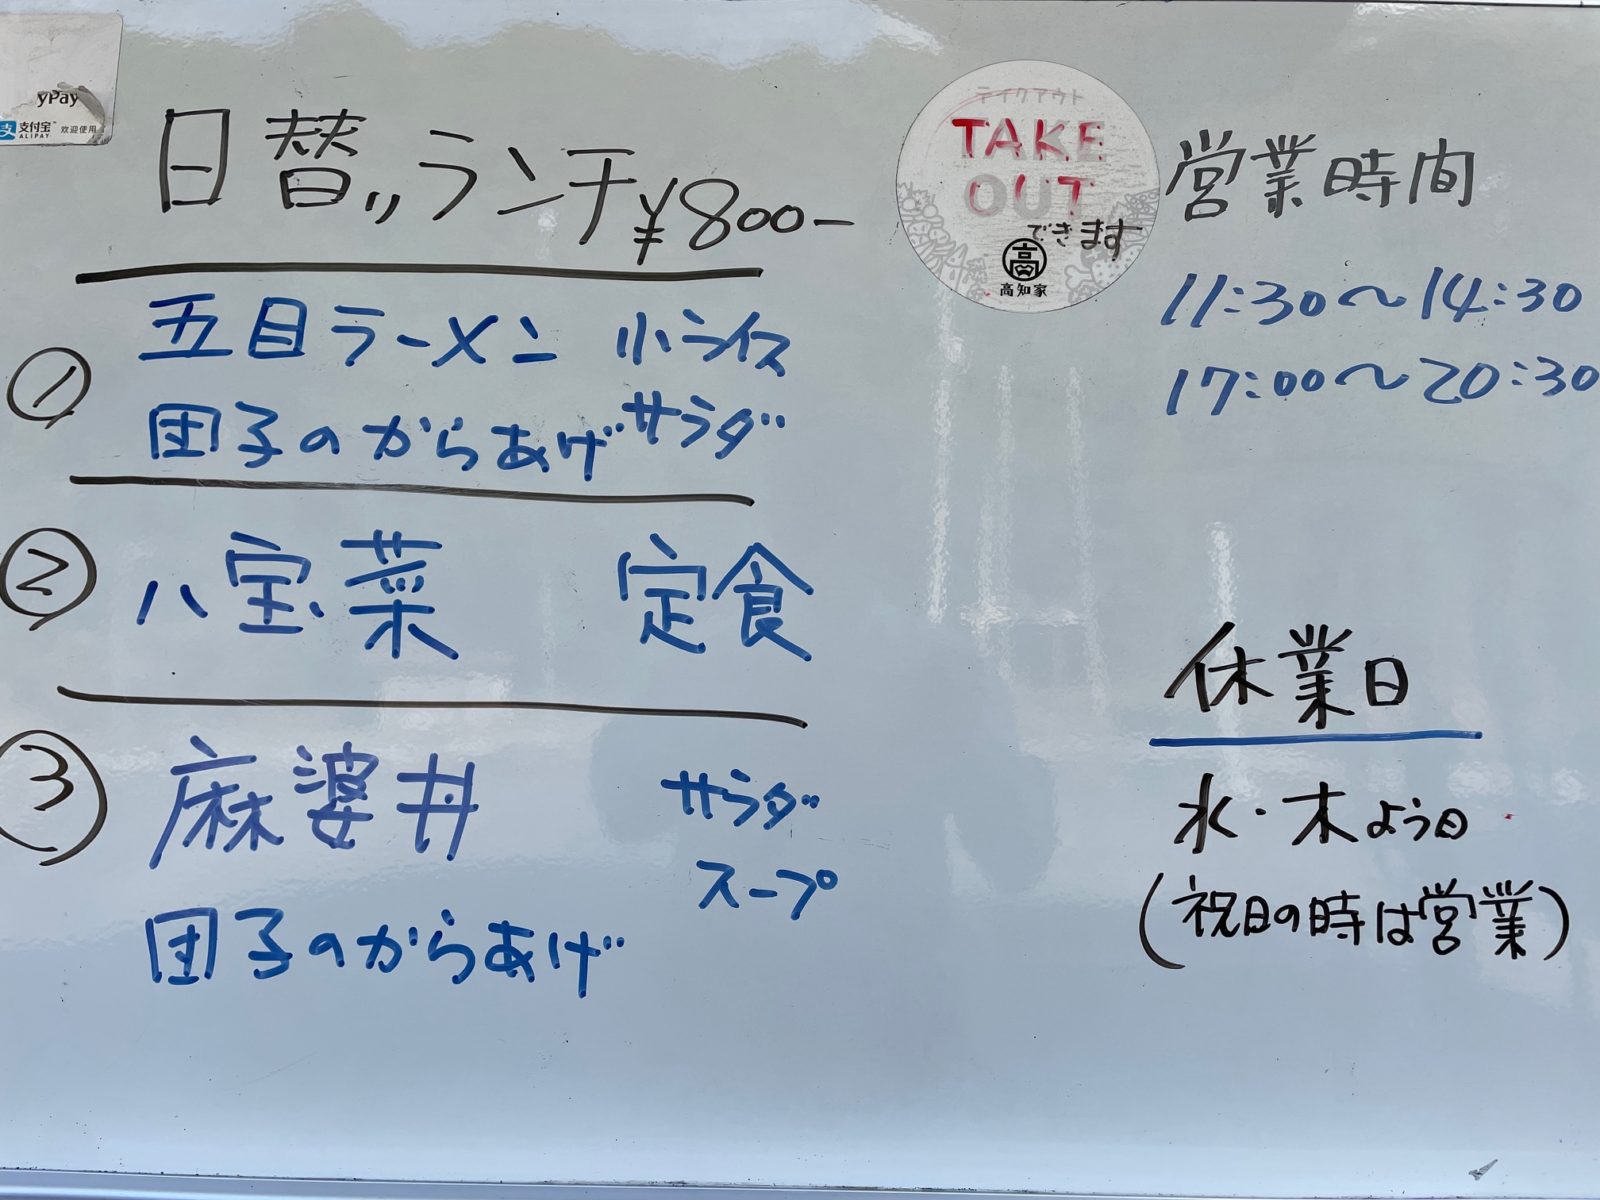 yPay
支付宝 欢迎使用
ALIPAY
日替りランチ ¥800-
① 五目ラーメン 小ライス
団子のからあげ サラダ
② 八宝菜 定食
③ 麻婆丼 サラダ
スープ
団子のからあげ
テイクアウト
TAKE
OUT
できます
高
高知家
営業時間
11:30〜14:30
17:00〜20:30
休業日
水・木よう日
(祝日の時は営業)